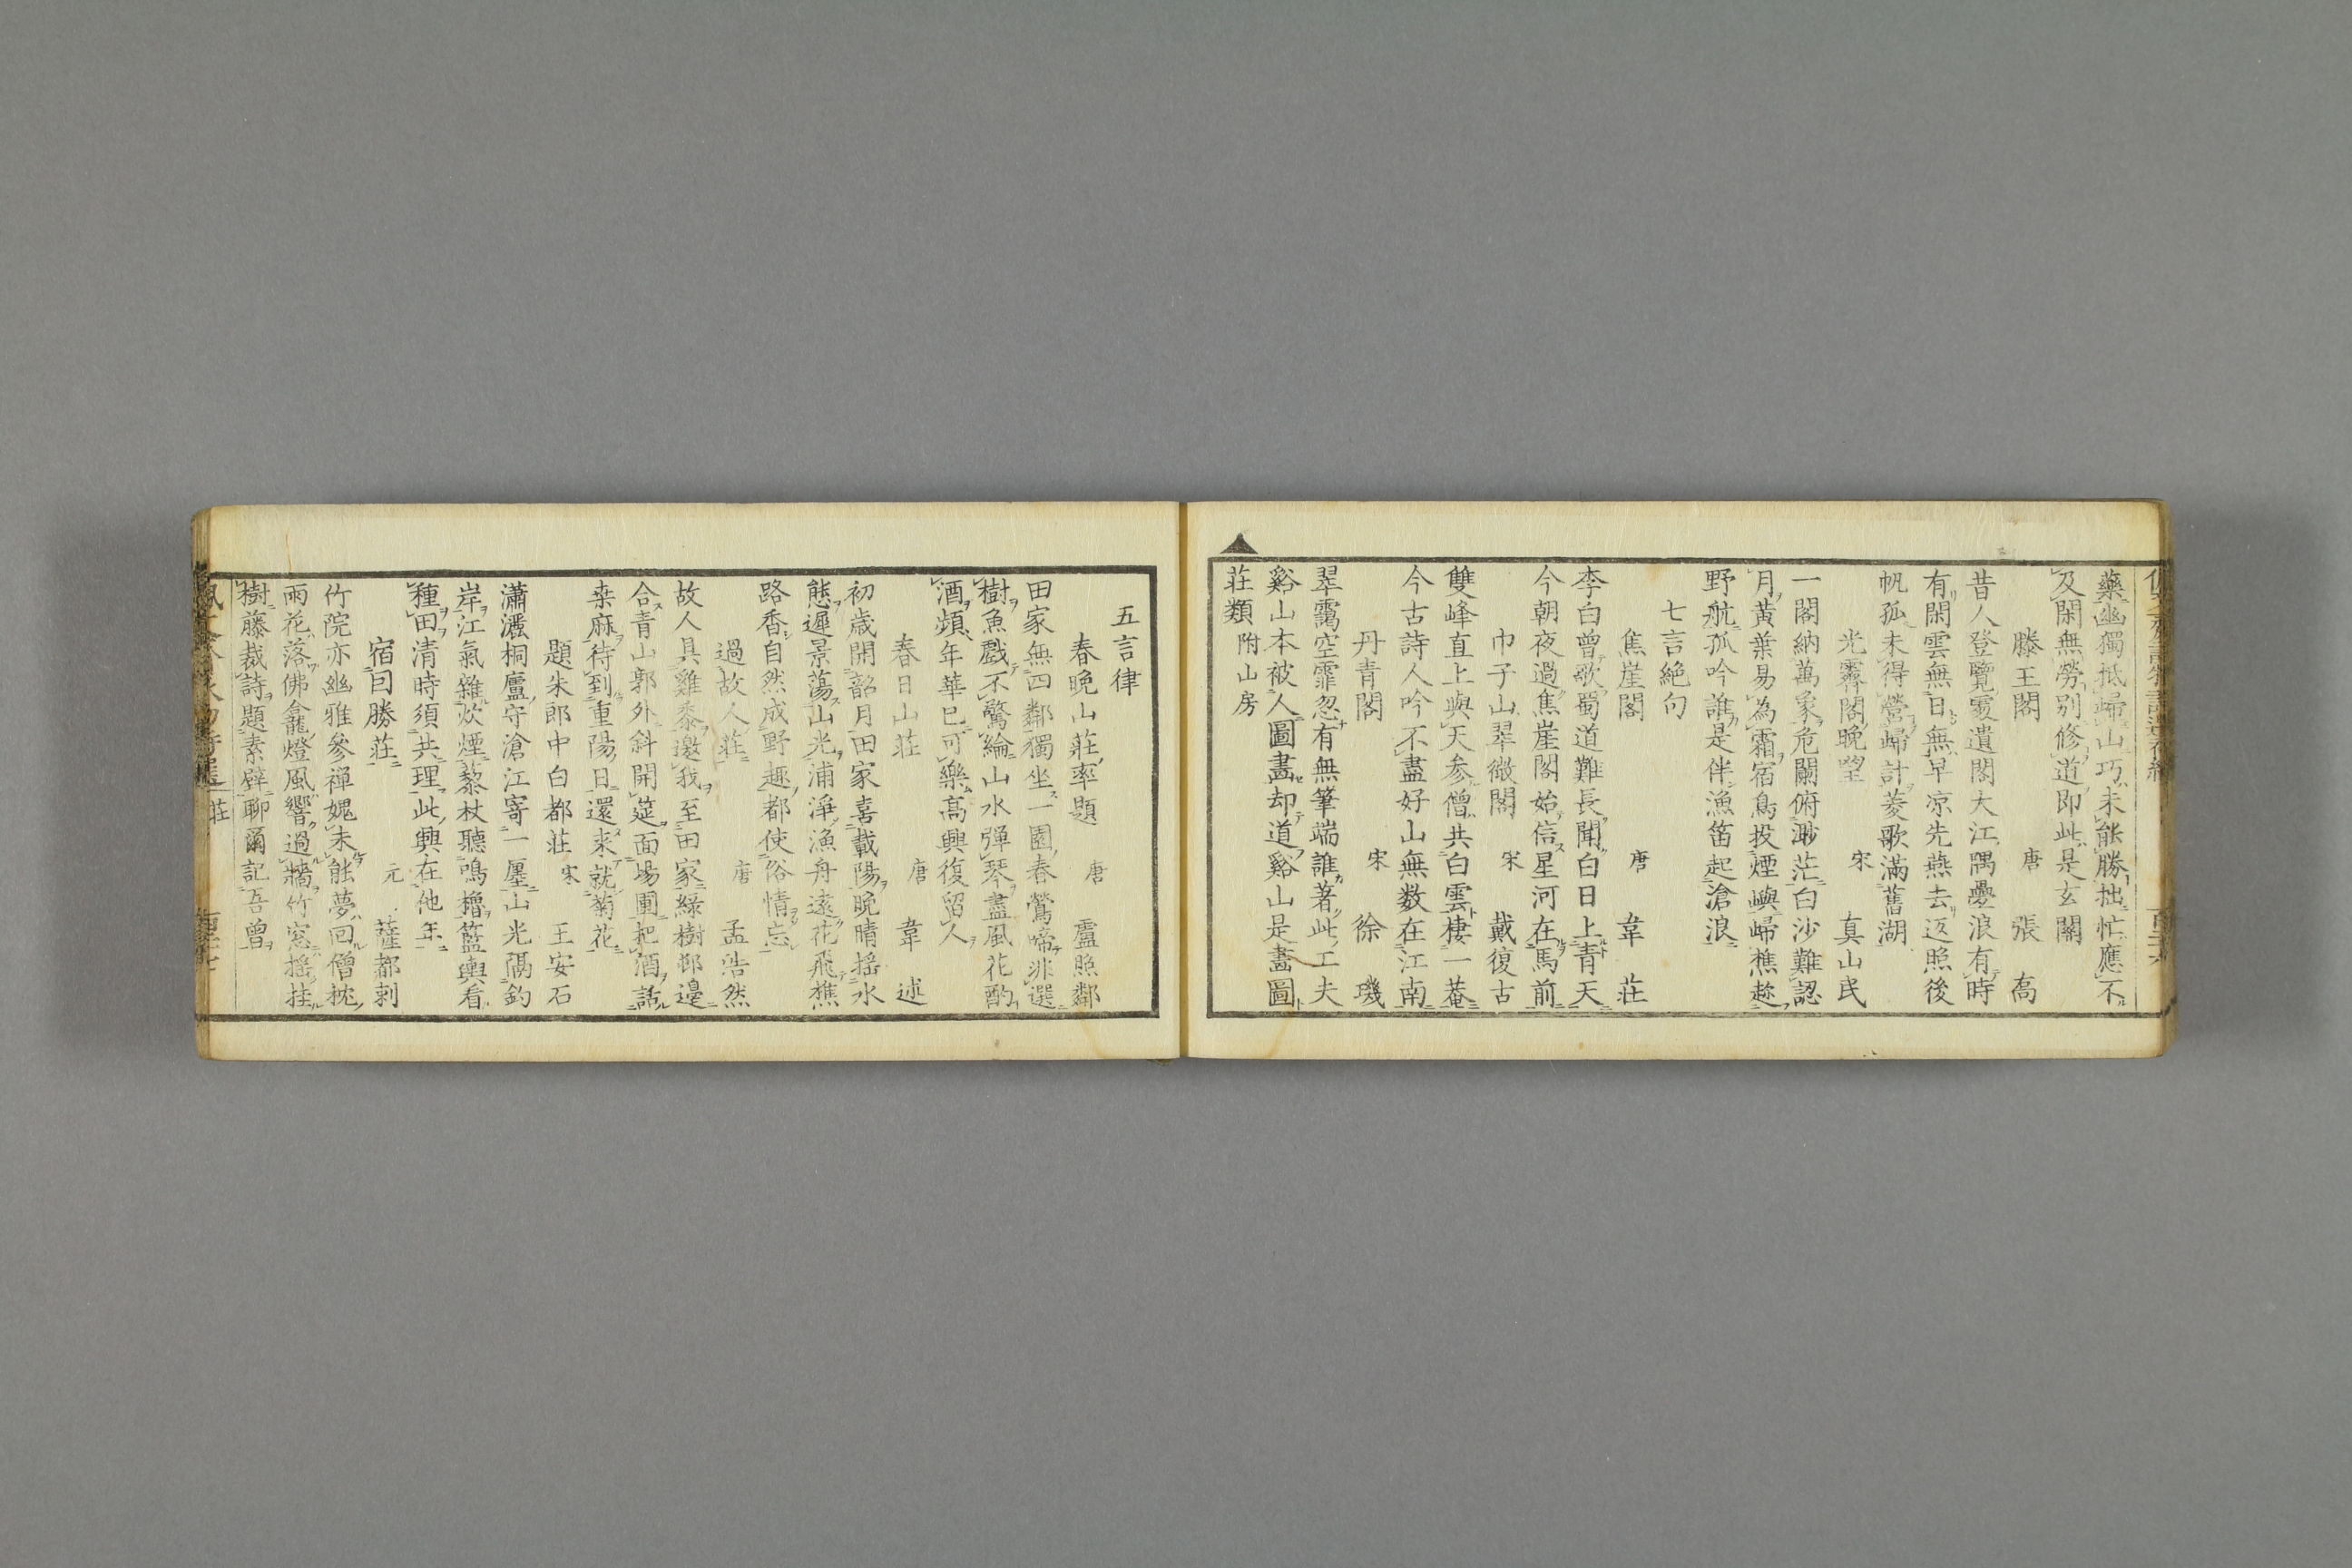 藥幽獨抵歸山巧未能勝拙忙應不
及閑無勞別修道即此是玄關
滕王閣 唐 張喬
昔人登覽處遺閣大江隅疊浪有時
有閑雲無日無早凉先燕去返照後
帆孤未得營歸計菱歌滿舊湖
光霽閣晚望 宋 真山民
一閣納萬象危闌俯渺茫白沙難認
月黃葉易為霜宿鳥投煙嶼歸樵趂
野航孤吟誰是伴漁笛起滄浪
七言絶句
焦崖閣 唐 韋莊
李白曾歌蜀道難長聞白日上青天
今朝夜過焦崖閣始信星河在馬前
巾子山翠微閣 宋 戴復古
雙峰直上與天参僧共白雲棲一菴
今古詩人吟不盡好山無数在江南
丹青閣 宋 徐璣
翠靄空霏忽有無筆端誰著此工夫
谿山本被人圖畫却道谿山是畫圖
莊類 附山房
五言律
春晩山莊率題 唐 盧照鄰
田家無四鄰獨坐一園春鶯啼非選
樹魚戲不驚綸山水彈琴盡風花酌
酒頻年華已可樂高興復留人
春日山莊 唐 韋述
初歳開韶月田家喜載陽晩晴揺水
態遲景蕩山光浦淨漁舟遠花飛樵
路香自然成野趣都使俗情忘
過故人莊 唐 孟浩然
故人具雞黍邀我至田家緑樹邨邊
合青山郭外斜開筵面場圃把酒話
桒麻待到重陽日還來就菊花
題朱郎中白都莊 宋 王安石
瀟灑桐廬守滄江寄一廛山光隔釣
岸江氣雜炊煙藜杖聽鳴櫓籃輿看
種田清時須共理此興在他年
宿回勝莊 元 薩都剌
竹院亦幽雅參禪媿未能夢回僧枕
雨花落佛龕燈風響過牆竹窓揺挂
樹藤裁詩題素壁聊爾記吾曾
莊